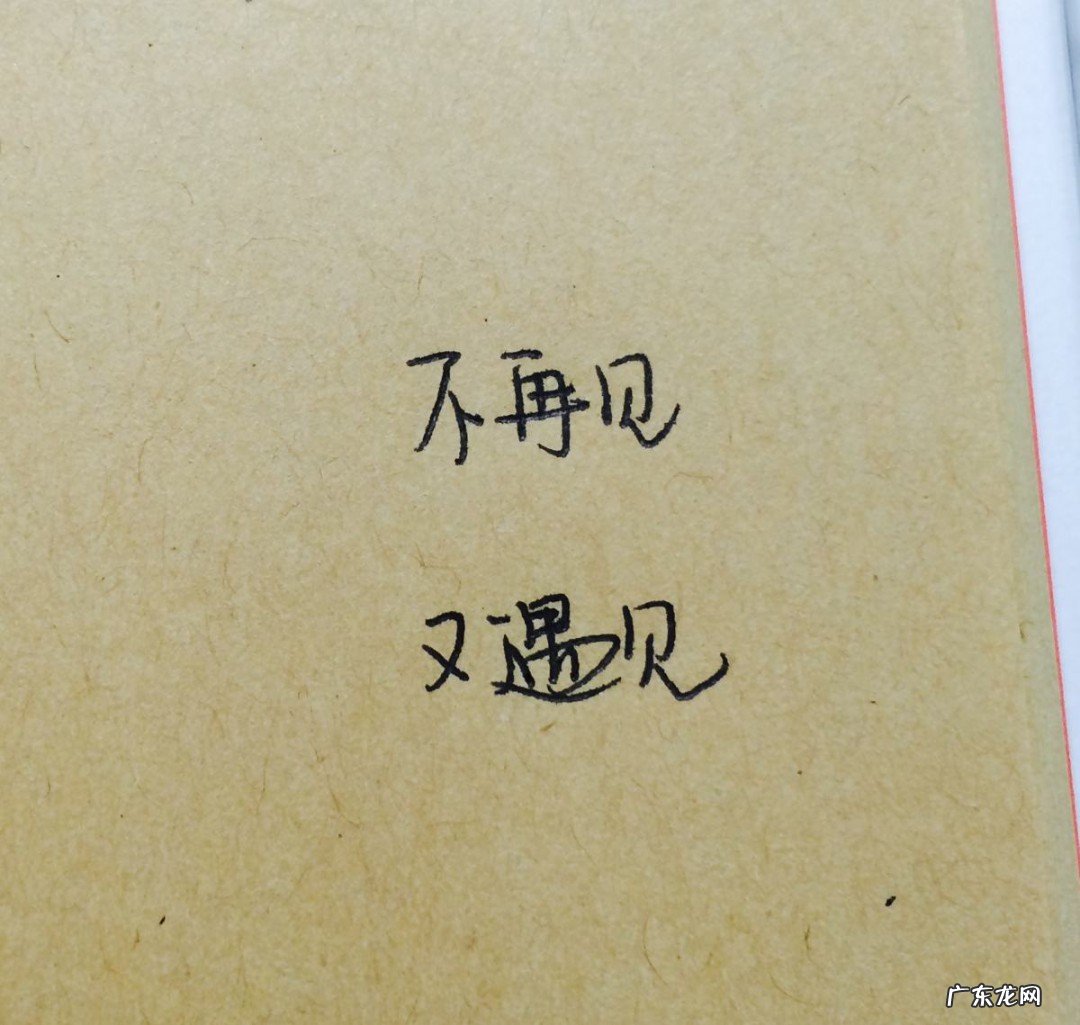 不再见
又遇见
广东龙网